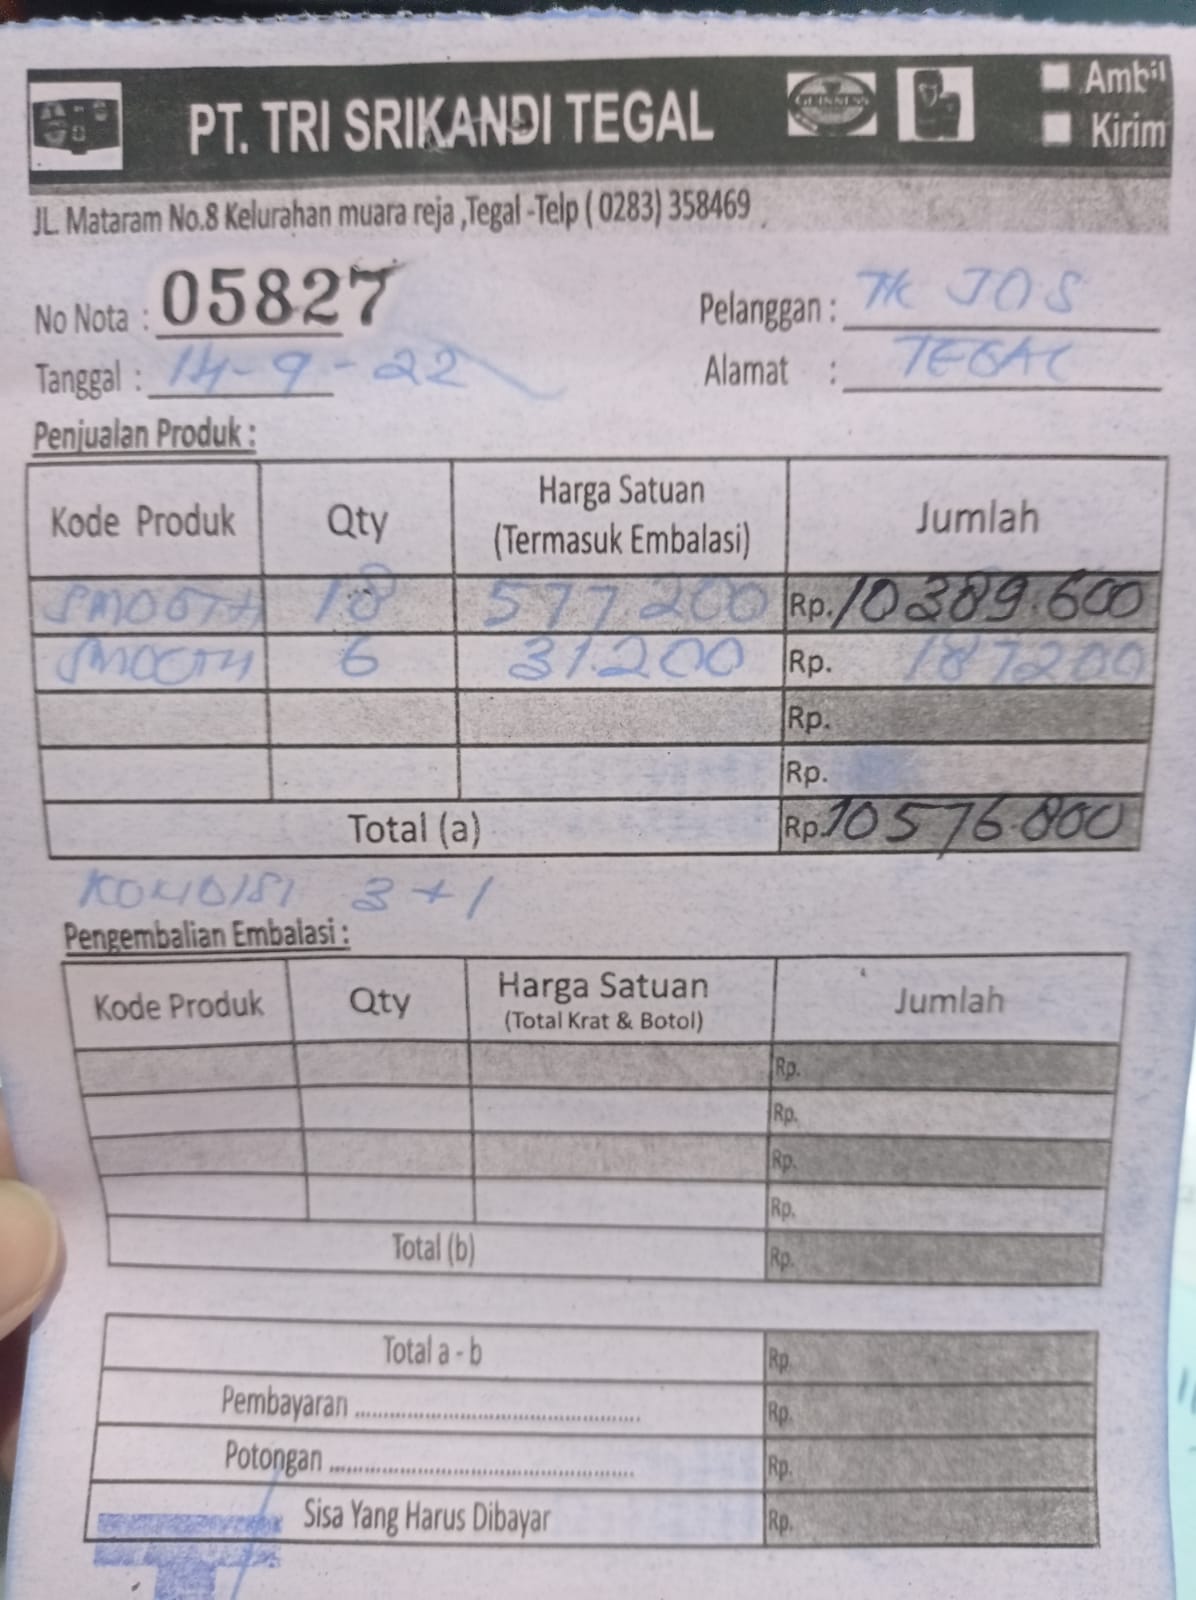 PT. TRI SRIKANDI TEGAL
GUINNESS
Ambil
Kirim
JL. Mataram No.8 Kelurahan muara reja ,Tegal -Telp ( 0283) 358469
No Nota : 05827
Pelanggan : TK JOS
Tanggal : 14-9-22
Alamat : TEGAL
Penjualan Produk :
Kode Produk Qty Harga Satuan (Termasuk Embalasi) Jumlah
SMOOTH 18 577.200 Rp. 10389.600
SMOOTH 6 31.200 Rp. 187200
Rp.
Rp.
Total (a) Rp. 10576.800
KONDISI 3 + 1
Pengembalian Embalasi :
Kode Produk Qty Harga Satuan (Total Krat & Botol) Jumlah
Rp.
Rp.
Rp.
Rp.
Total (b) Rp.
Total a - b Rp.
Pembayaran ............................................ Rp.
Potongan ............................................... Rp.
Sisa Yang Harus Dibayar Rp.